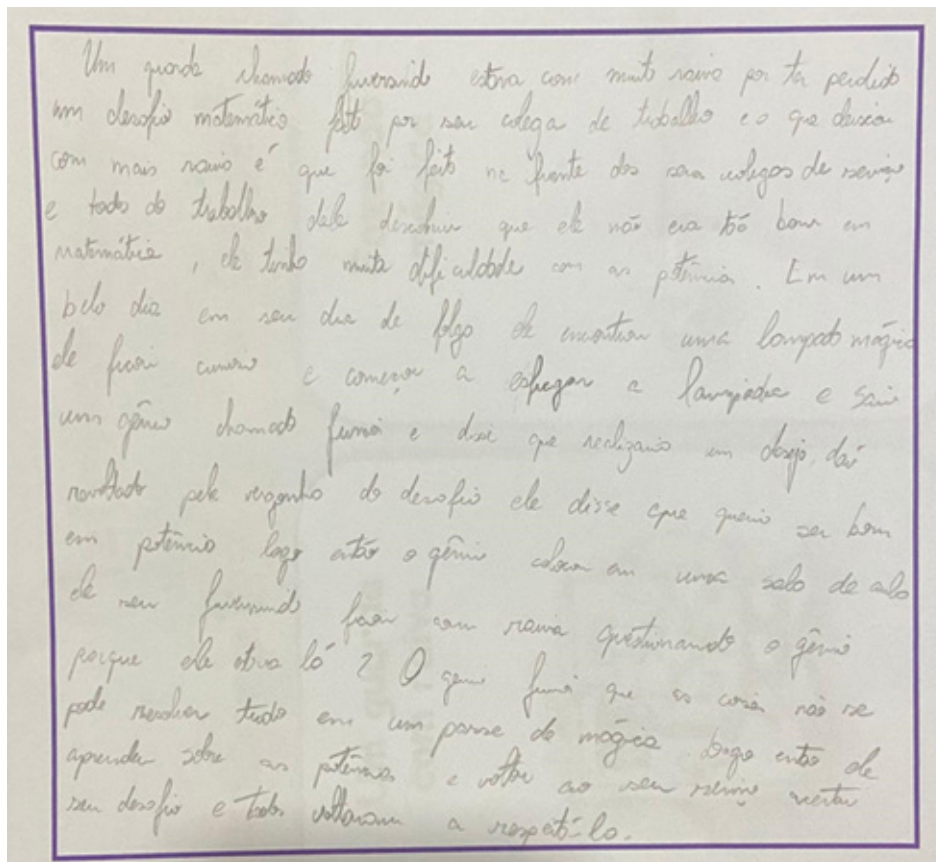 Um guarda chamado fuverando estava com muito raiva por ter perdido
um desafio matemático feito por seu colega de trabalho e o que deixou
com mais raiva é que foi feito na frente dos seus colegas de serviço
e todo do trabalho dele descobriu que ele não era tão bom em
matemática, ele tinha muita dificuldade com as potência. Em um
belo dia em seu dia de folga ele encontrou uma lampada mágica
ele ficou curioso e começou a esfregar a lampada e saiu
um gênio chamado e disse que realizaria um desejo, daí
revoltado pela vergonha do desafio ele disse que queria ser bom
em potência logo então o gênio colocou em uma sala de aula
ele seu ficou com raiva questionando o gênio
porque ele estava lá? O genio que as coisas não se
pode resolver tudo em um passe de mágica. Logo então ele
aprendeu sobre as potências e voltou ao seu
seu desafio e todos voltaram a respeitá-lo.